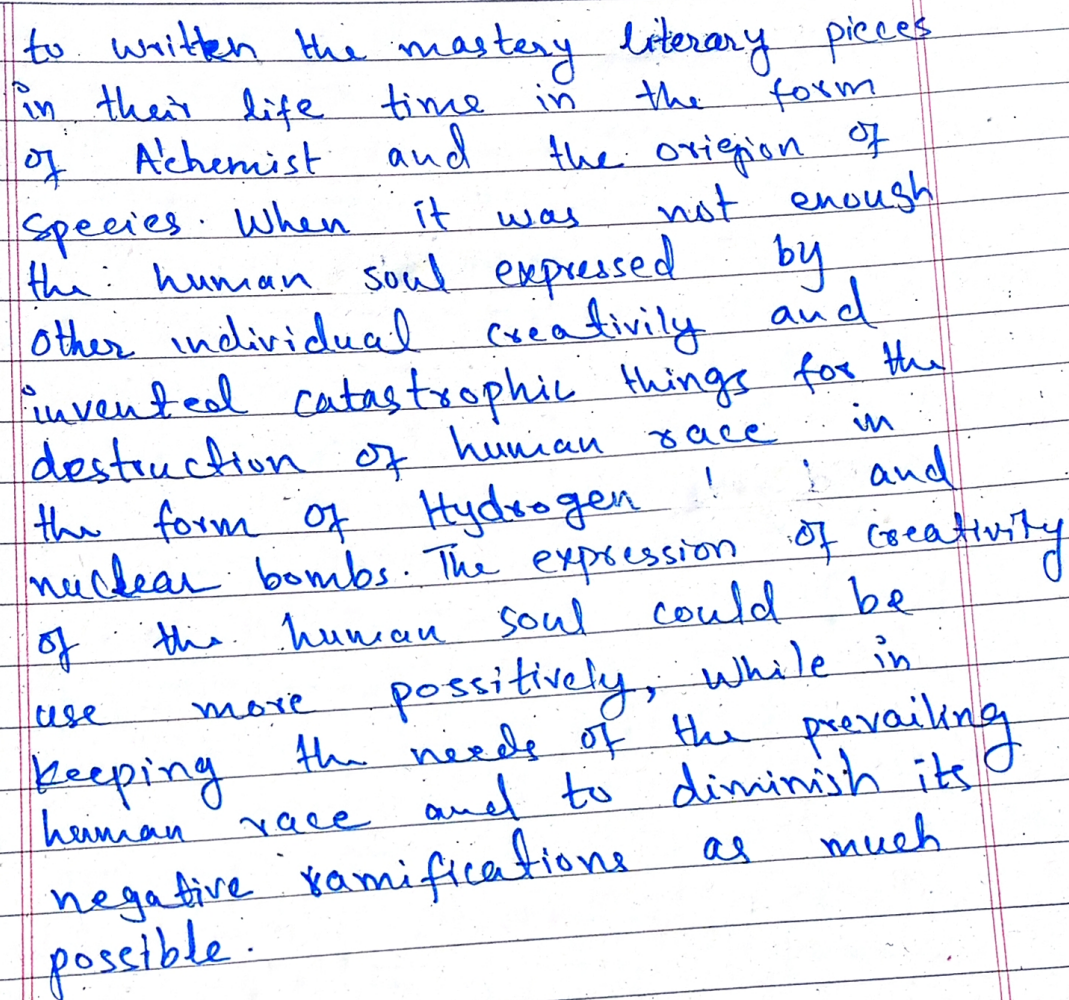 to written the mastery literary pieces
in their life time in the form
of Alchemist and the oriegion of
species. When it was not enough
the human soul expressed by
other individual creativily and
invented catastrophic things for the
destruction of human race in
the form of Hydrogen and
nuclear bombs. The expression of creativity
of the human soul could be
use more possitively, while in
keeping the needs of the prevailing
human race and to diminish its
negative ramifications as much
possible.